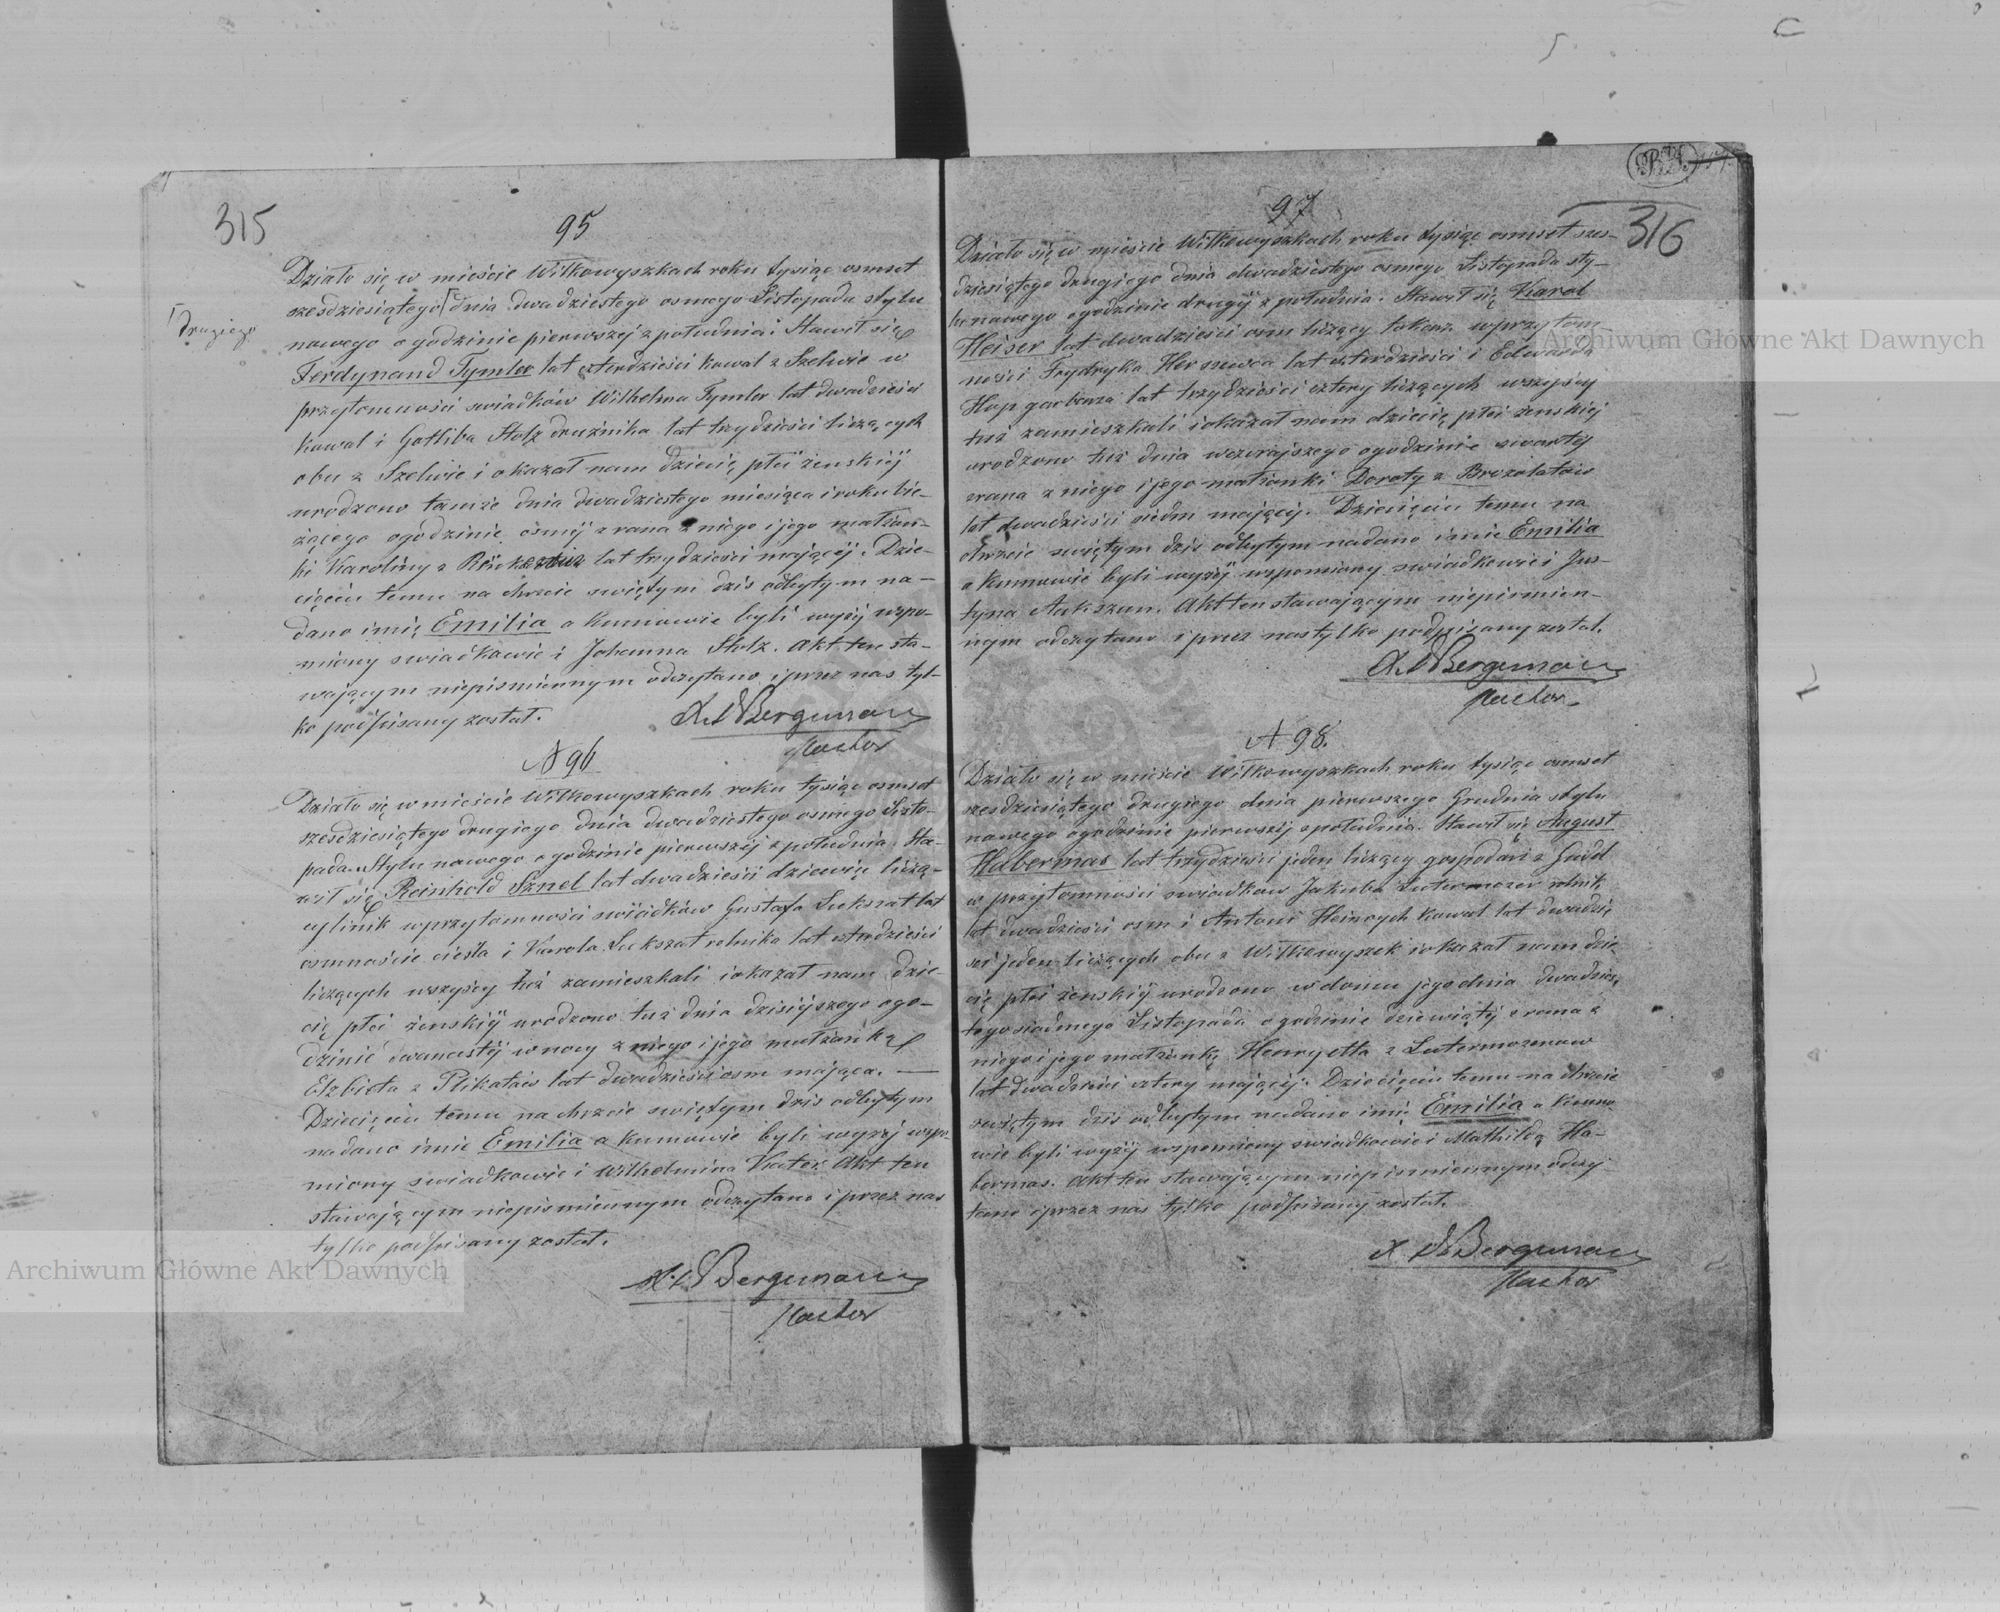 315
95
Działo się w mieście Wiłkowyszkach roku tysiąc osmset
szesdziesiątego dnia dwadziestego osmego Listopada stylu
drugiego
nowego o godzinie pierwszej z południa. Stawił się
Ferdynand Tymler lat czterdzieści kowal z Szelwie w
przytomności swiadków Wilhelma Tymler lat dwadzieści
kowal i Gotliba Stolz druźnika lat trzydzieści liczących
obu z Szelwie i okazał nam dziecię płci żenskiéj
urodzone tamże dnia dwadziestego miesiąca i roku bie-
żącego o godzinie ósméj z rana z niego i jego małżon-
ki Karoliny z lat trzydzieści mającéj. Dzie-
cięciu temu na chrzcie swiętym dzis odbytym na-
dano imię Emilia a kumowie byli wyżéj wspo-
miony swiadkowie i Johanna Stolz. Akt ten sta-
wającym niepismiennym odczytano i przez nas tyl-
ko podpisany został.
Bergemann
Pastor
N 96
Działo się w mieście Wiłkowyszkach roku tysiąc osmset
szesdziesiątego drugiego dnia dwadziestego osmego Listo-
pada Stylu nowego o godzinie pierwszéj z południa. Sta-
wił się Reinhold Sznel lat dwadzieści dziewięć liczą-
cy w przytomności swiadków Gustafa Lukszat lat
osmnaście cieśla i Karola Lukszat rolnika lat czterdzieści
liczących wszyscy tuż zamieszkali i okazał nam dzie-
cię płci żenskiéj urodzone tuż dnia dzisiéjszego o go-
dzinie dwanastéj w nocy z niego i jego małżonką
Elzbieta z Plikatais lat dwadzieści osm mająca. —
Dziecięciu temu na chrzcie swiętym dzis odbytym
nadano imie Emilia a kumowie byli wyżéj wspo-
miony swiadkowie i Wilhelmina Kater. Akt ten
stawającym niepismiennym odczytano i przez nas
tylko podpisany został.
Bergemann
Pastor
316
97
Działo się w mieście Wiłkowyszkach roku tysiąc osmset szes-
dziesiątego drugiego dnia dwadziestego osmego Listopada sty-
lu nowego o godzinie drugiéj z południa. Stawił się Karol
Heiser lat dwadzieści osm liczący tokarz w przytom-
ności Frydryka lat czterdzieści i Edwarda
Hop garbarza lat trzydzieści cztery liczących wszyscy
tuż zamieszkali i okazał nam dziecię płci żenskiéj
urodzone tuż dnia wczorajszego o godzinie czwartéj
z rana z niego i jego małżonki Doroty z Brozolatów
lat dwadzieści siedm mającéj. Dziecięciu temu na
chrzcie swiętym dzis odbytym nadano imie Emilia
a kumowie byli wyżéj wspomiony swiadkowie i Jus-
tyna Aukszun. Akt ten stawającym niepismien-
nym odczytano i przez nas tylko podpisany został.
Bergemann
Pastor
N 98.
Działo się w mieście Wiłkowyszkach roku tysiąc osmset
szesdziesiątego drugiego dnia pierwszego Grudnia stylu
nowego o godzinie pierwszéj z południa. Stawił się August
Habermas lat trzydzieści jeden liczący gospodarz z
w przytomności swiadków Jakuba Lutermozer rolnik
lat dwadzieści osm i Antoni Heinrych kowal lat dwadzie
sci jeden liczących obu z Wiłkowyszek i okazał nam dzie-
cię płci żenskiéj urodzone w domu jego dnia dwadzies-
tego siódmego Listopada o godzinie dziewiątéj z rana z
niego i jego małżonką Henryetta z Lutermozerow
lat dwadzieści cztery mającéj. Dziecięciu temu na chrzcie
swiętym dzis odbytym nadano imię Emilia a kumo-
wie byli wyżéj wspomiony swiadkowie i Mathildą Ha-
bermas. Akt ten stawającym niepismiennym odczy-
tano i przez nas tylko podpisany został.
Bergemann
Pastor
Archiwum Główne Akt Dawnych
Archiwum Główne Akt Dawnych